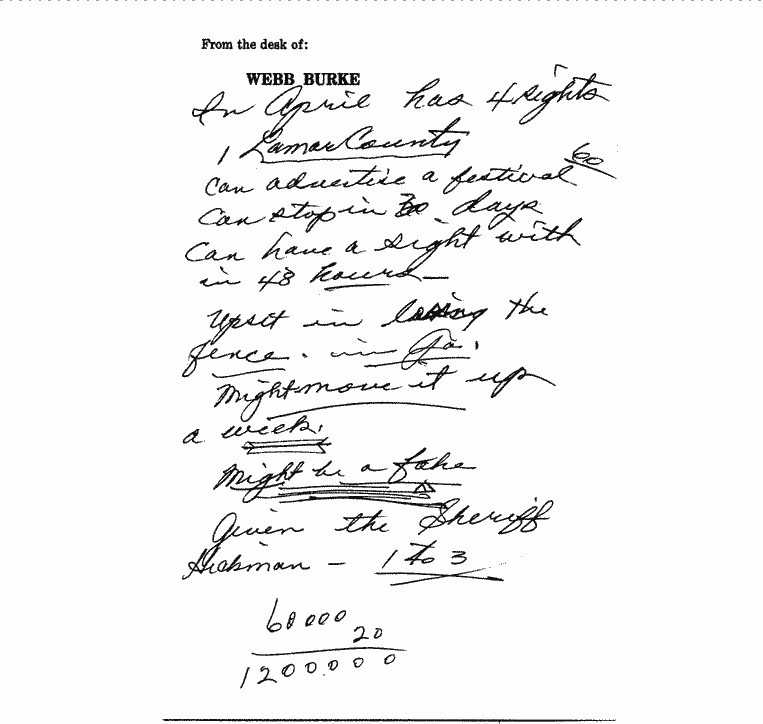 From the desk of:
WEBB BURKE
In April has 4 sights
1 Lamar County
60
Can advertise a festival
Can stop in days
Can have a sight with
in 48 hours —
Upset in losing the
fence. in Ga.
Might move it up
a week.
Might be a fake
Given the Sheriff
Hickman — 1 to 3
60000
20
1200000